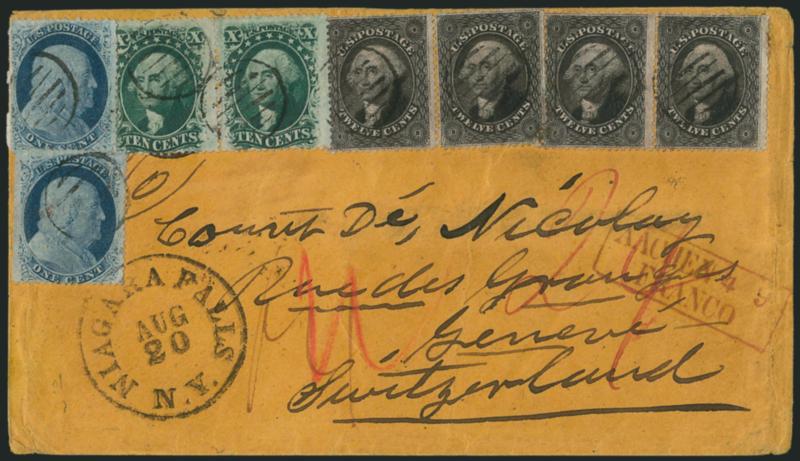 U.S. POSTAGE
ONE CENT
X X
TEN CENTS
X X
TEN CENTS
U.S. POSTAGE
TWELVE CENTS
U.S. POSTAGE
TWELVE CENTS
U.S. POSTAGE
TWELVE CENTS
U.S. POSTAGE
TWELVE CENTS
U.S. POSTAGE
ONE CENT
Count Dé, Nicolay
Rue des Granges
Genéve
Switzerland
NIAGARA FALLS
AUG
20
N.Y.
AACHEN 4 9
FRANCO